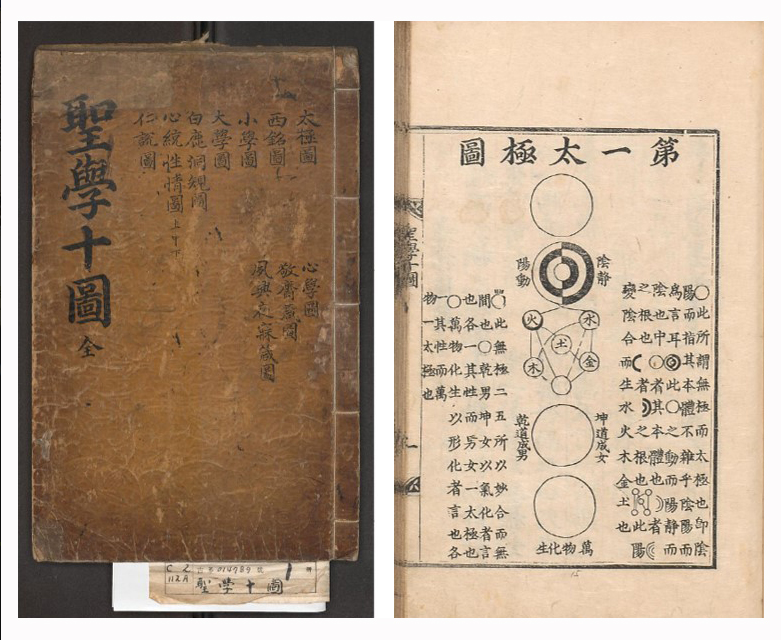 聖學十圖 全
太極圖
西銘圖
小學圖
大學圖
白鹿洞規圖
心統性情圖 上中下
仁說圖
心學圖
敬齋箴圖
夙興夜寐箴圖
聖學十圖
第一太極圖
○此所謂無極而太極也卽陰
陽而指其本體不雜乎陰陽而
爲言耳◎此○之動而陽靜而
陰也中○者其本體也
之根也
變陰合而生水火木金土也
陰靜
陽動
火
水
土
木
金
坤道成女
乾道成男
萬物化生
此無極二五所以妙合而無
間也○乾男坤女以氣化者言
也各一其性而男女一太極也
○萬物化生以形化者言也各
一其性而萬
物一太極也
聖學十圖